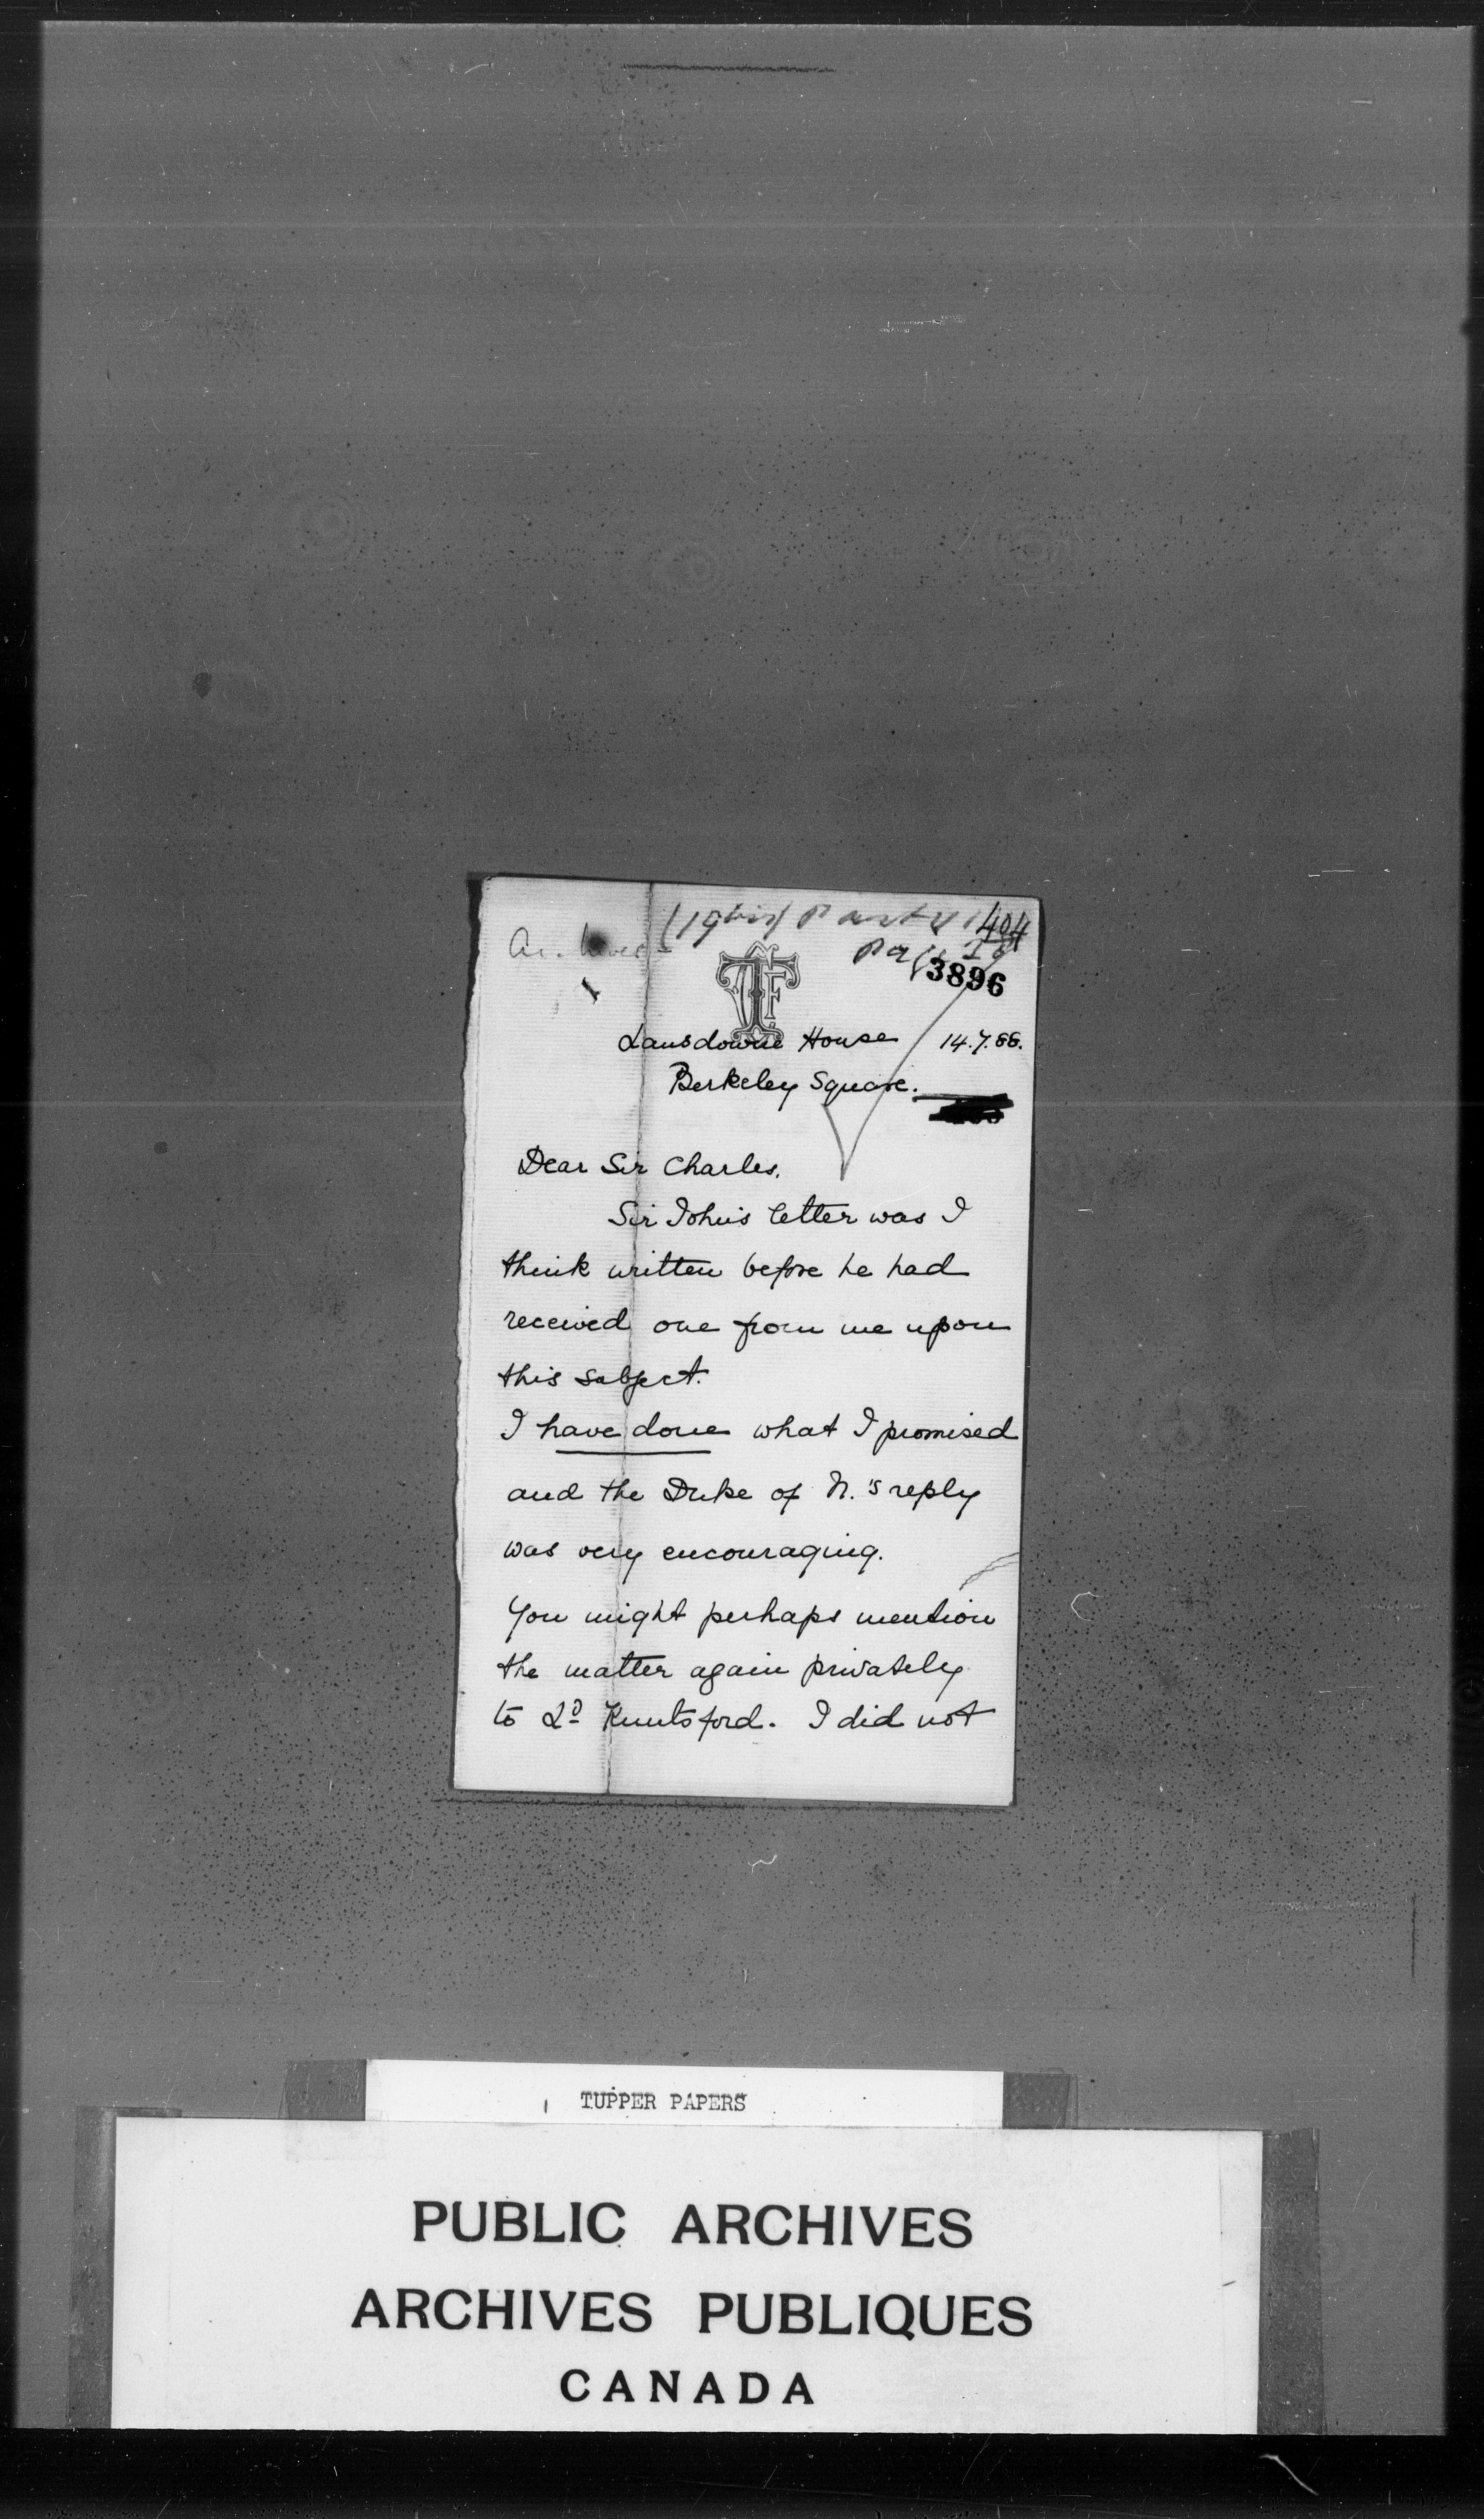 404
3896
Lansdowne House 14.7.88.
Berkeley Square.
Dear Sir Charles.
Sir John's letter was I
think written before he had
received one from me upon
this subject.
I have done what I promised
and the Duke of N.'s reply
was very encouraging.
You might perhaps mention
the matter again privately
to Ld Knutsford. I did not
TUPPER PAPERS
PUBLIC ARCHIVES
ARCHIVES PUBLIQUES
CANADA